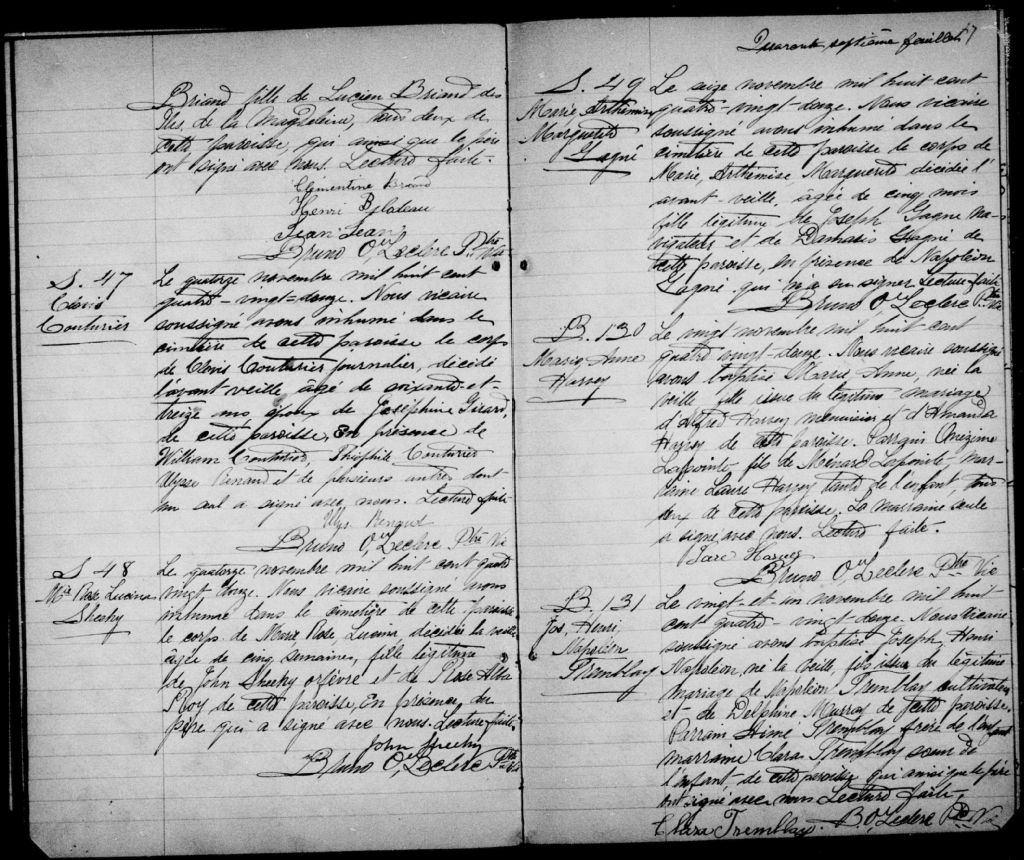 Briand fille de Lucien Briand des
Iles de la Magdeleine, tous deux de
cette paroisse, qui ainsi que le père
ont signé avec nous. Lecture faite.
Clémentine Briand
Henri Bilodeau
Jean Jean
Bruno O. Leclerc Ptre Vic
S. 47
Clovis
Couturier
Le quatorze novembre mil huit cent
quatre-vingt-douze. Nous vicaire
soussigné avons inhumé dans le
cimetière de cette paroisse le corps
de Clovis Couturier journalier, décédé
l'avant-veille âgé de soixante-et-
treize ans époux de Joséphine Girard,
de cette paroisse, En présence de
William Couturier, Théophile Couturier
Ulysse Renaud et de plusieurs autres dont
un seul a signé avec nous. Lecture faite
Ulys. Renaud
Bruno O. Leclerc Ptre Vic
S 48
Mie Rose Lucina
Sheehy
Le quatorze novembre mil huit cent quatre
vingt douze. Nous vicaire soussigné avons
inhumé dans le cimetière de cette paroisse
le corps de Marie Rose Lucina, décédée la veille
âgée de cinq semaines, fille légitime
de John Sheehy orfèvre et de Rose Alba
Roy de cette paroisse, En présence du
père qui a signé avec nous. Lecture faite.
John Sheehy
Bruno O. Leclerc Ptre Vic
Quarante septième feuillet 47
S. 49
Marie Arthemise
Marguerite
Gagné
Le seize novembre mil huit cent
quatre-vingt-douze. Nous vicaire
soussigné avons inhumé dans le
cimetière de cette paroisse le corps de
Marie, Arthemise, Marguerite décédée l'
avant-veille, âgée de cinq mois
fille légitime de Joseph Gagné na-
vigateur et de Damasis Gagné de
cette paroisse, en présence de Napoléon
Gagné qui n'a su signer. Lecture faite
Bruno O. Leclerc Ptre Vic
B. 130
Marie, Anne
Harvey
Le vingt novembre mil huit cent
quatre vingt-douze. Nous vicaire soussigné
avons baptisé Marie, Anne, née la
veille fille issue du légitime mariage
d'Alfred Harvey menuisier et d'Amanda
Harvey de cette paroisse. Parrain Onézime
Lapointe fils de Ménard Lapointe, mar-
raine Laure Harvey tante de l'enfant, tous
deux de cette paroisse. La marraine seule
a signé avec nous. Lecture faite.
Laure Harvey
Bruno O. Leclerc Ptre Vic
B. 131
Jos, Henri,
Napoléon
Tremblay
Le vingt-et-un novembre mil huit
cent quatre-vingt-douze. Nous vicaire
soussigné avons baptisé Joseph, Henri
Napoléon, né la veille, fils issu du légitime
mariage de Napoléon Tremblay cultivateur
et de Delphine Murray de cette paroisse.
Parrain Aimé Tremblay frère de l'enfant
marraine Clara Tremblay sœur de
l'enfant, de cette paroisse qui ainsi que le père
ont signé avec nous Lecture faite.
Clara Tremblay. B. O. Leclerc Ptre Vic